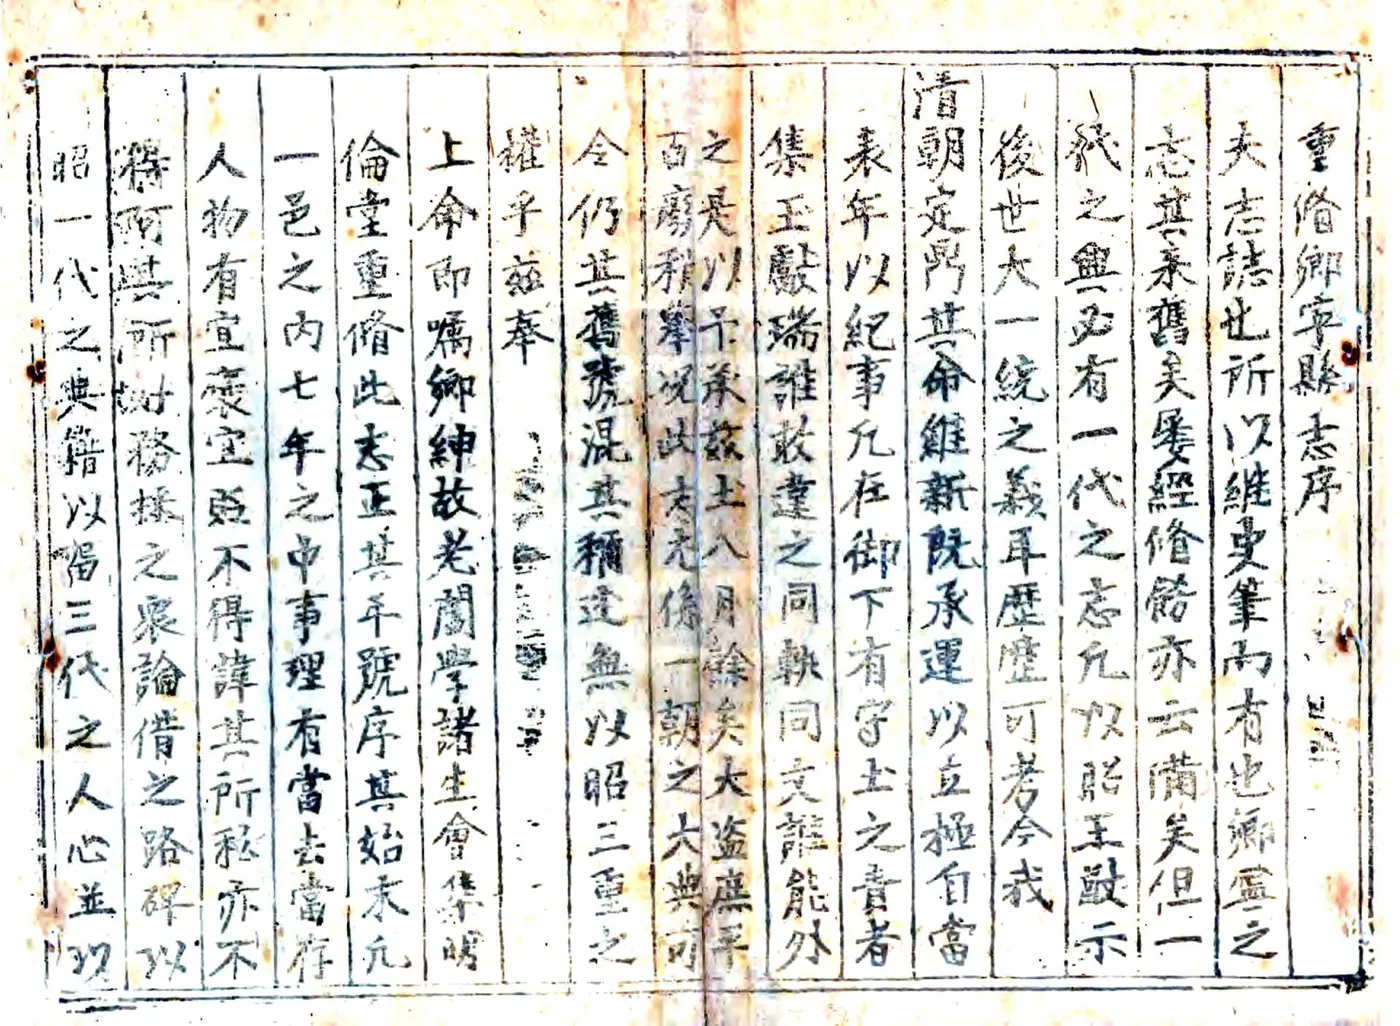 重脩鄉寧縣志序
夫志誌也所以維史筆而有也鄉寧之
志其來舊矣屡經脩飭亦云備矣但一
代之興必有一代之志凢以昭王猷示
後世大一統之義耳歷歷可考今我
清朝定鼎其命維新既承運以立極自當
表年以紀事凢在御下有字土之責者
集玉獻瑞誰敢違之同軌同文誰能外
之是以予承茲土八月餘矣大盗庶平
百廢稍舉况此志尤係一朝之大典可
令仍其舊號混其稱迄無以昭三重之
權乎茲奉
上命即嘱鄉紳故老闔學諸生會集明
倫堂重脩此志正其年號序其始末凢
一邑之内七年之中事理有當去當存
人物有宜褒宜貶不得諱其所私亦不
得阿其所 務採之衆論借之路碑以
昭一代之典籍以留三代之人心並以